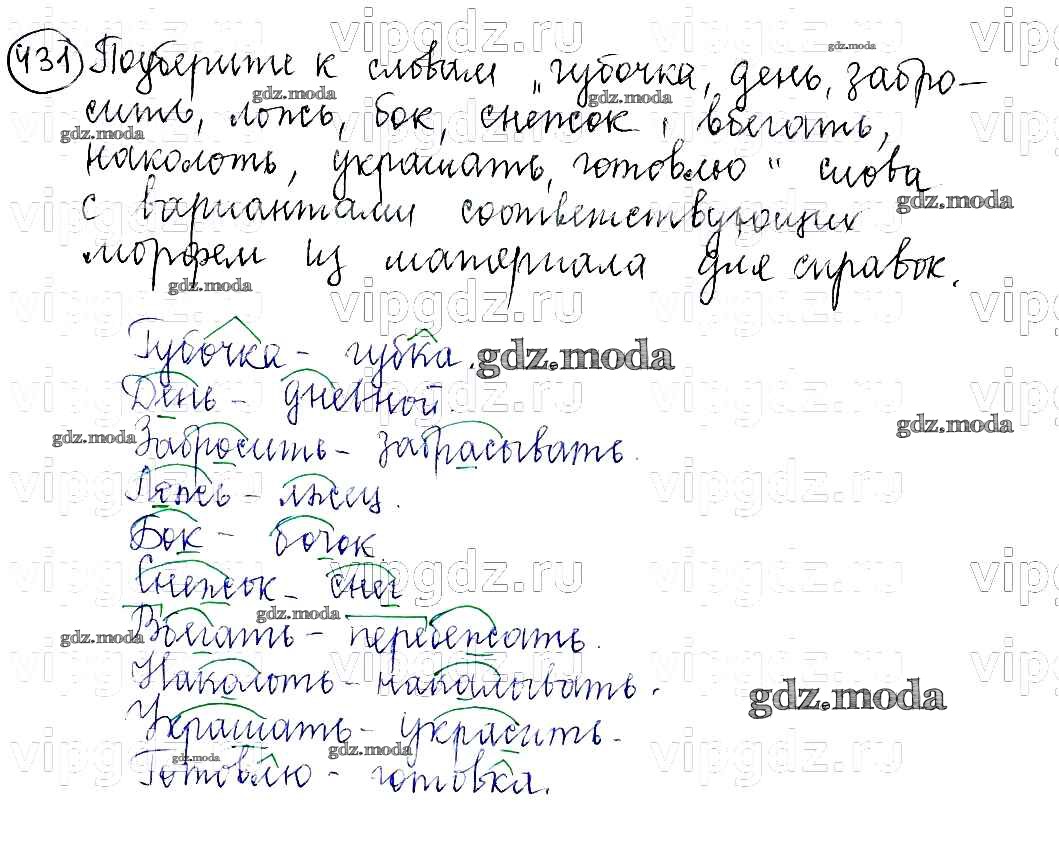 431 Подберите к словам „губочка, день, забро-
сить, ложь, бок, снежок, вбегать,
наколоть, украшать, готовлю“ слова
с вариантами соответствующих
морфем из материала для справок.
Губочка - губка.
День - дневной.
Забросить - забрасывать.
Ложь - лжец.
Бок - бочок.
Снежок - снег
Вбегать - перебежать.
Наколоть - накалывать.
Украшать - украсить.
Готовлю - готовка.
gdz.moda
vipgdz.ru